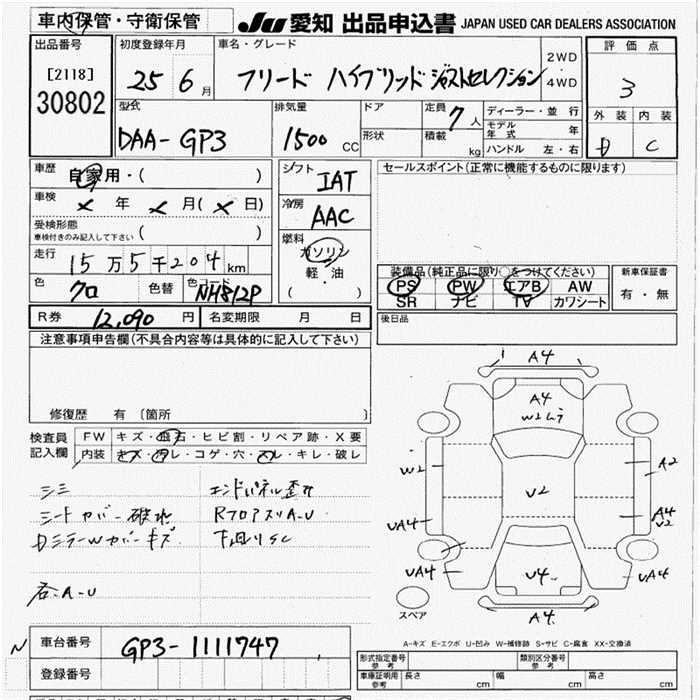 車内保管・守衛保管
JU 愛知 出品申込書 JAPAN USED CAR DEALERS ASSOCIATION
出品番号
[2118]
30802
初度登録年月
25 6 月
車名・グレード
フリード ハイブリッド ジャストセレクション
2WD
・
4WD
評価点
3
外装 内装
D C
型式
DAA-GP3
排気量
1500 CC
ドア
形状
定員 7 人
積載 kg
ディーラー・並行
モデル年式 年
ハンドル 左・右
車歴 自家用・( )
車検 × 年 × 月(× 日)
受検形態
車検付きのみ記入して下さい ( )
走行 15万5千204 km
色 クロ 色替 色コード NH812P
シフト IAT
冷房 AAC
燃料 ガソリン
軽・油
( )
セールスポイント(正常に機能するものに限ります)
装備品(純正品に限り○をつけてください)
PS PW エアB AW
SR ナビ TV カワシート
新車保証書
有・無
R券 12,090 円 名変期限 月 日
後日品
注意事項申告欄(不具合内容等は具体的に記入して下さい)
修復歴 有 〔箇所 〕
検査員
記入欄
FW キズ・飛石・ヒビ割・リペア跡・X要
内装 キズ・汚レ・コゲ・穴・スレ・キレ・破レ
シミ エンドパネル歪み
シートカバー破れ RフロアスリA-U
DミラーWカバーキズ 下廻りSC
各A-U
A4
A4
W2ムラ
W2
A2
V2
UA4
A4
V2
UA4
V4
UA4
A4
スペア
A-キズ E-エクボ U-凹み W-補修跡 S-サビ C-腐食 XX-交換済
N
車台番号 GP3-1111747
登録番号
形式指定番号
参考
類別区分番号
参考
車庫証明用
参考
長さ cm 幅 cm 高さ cm